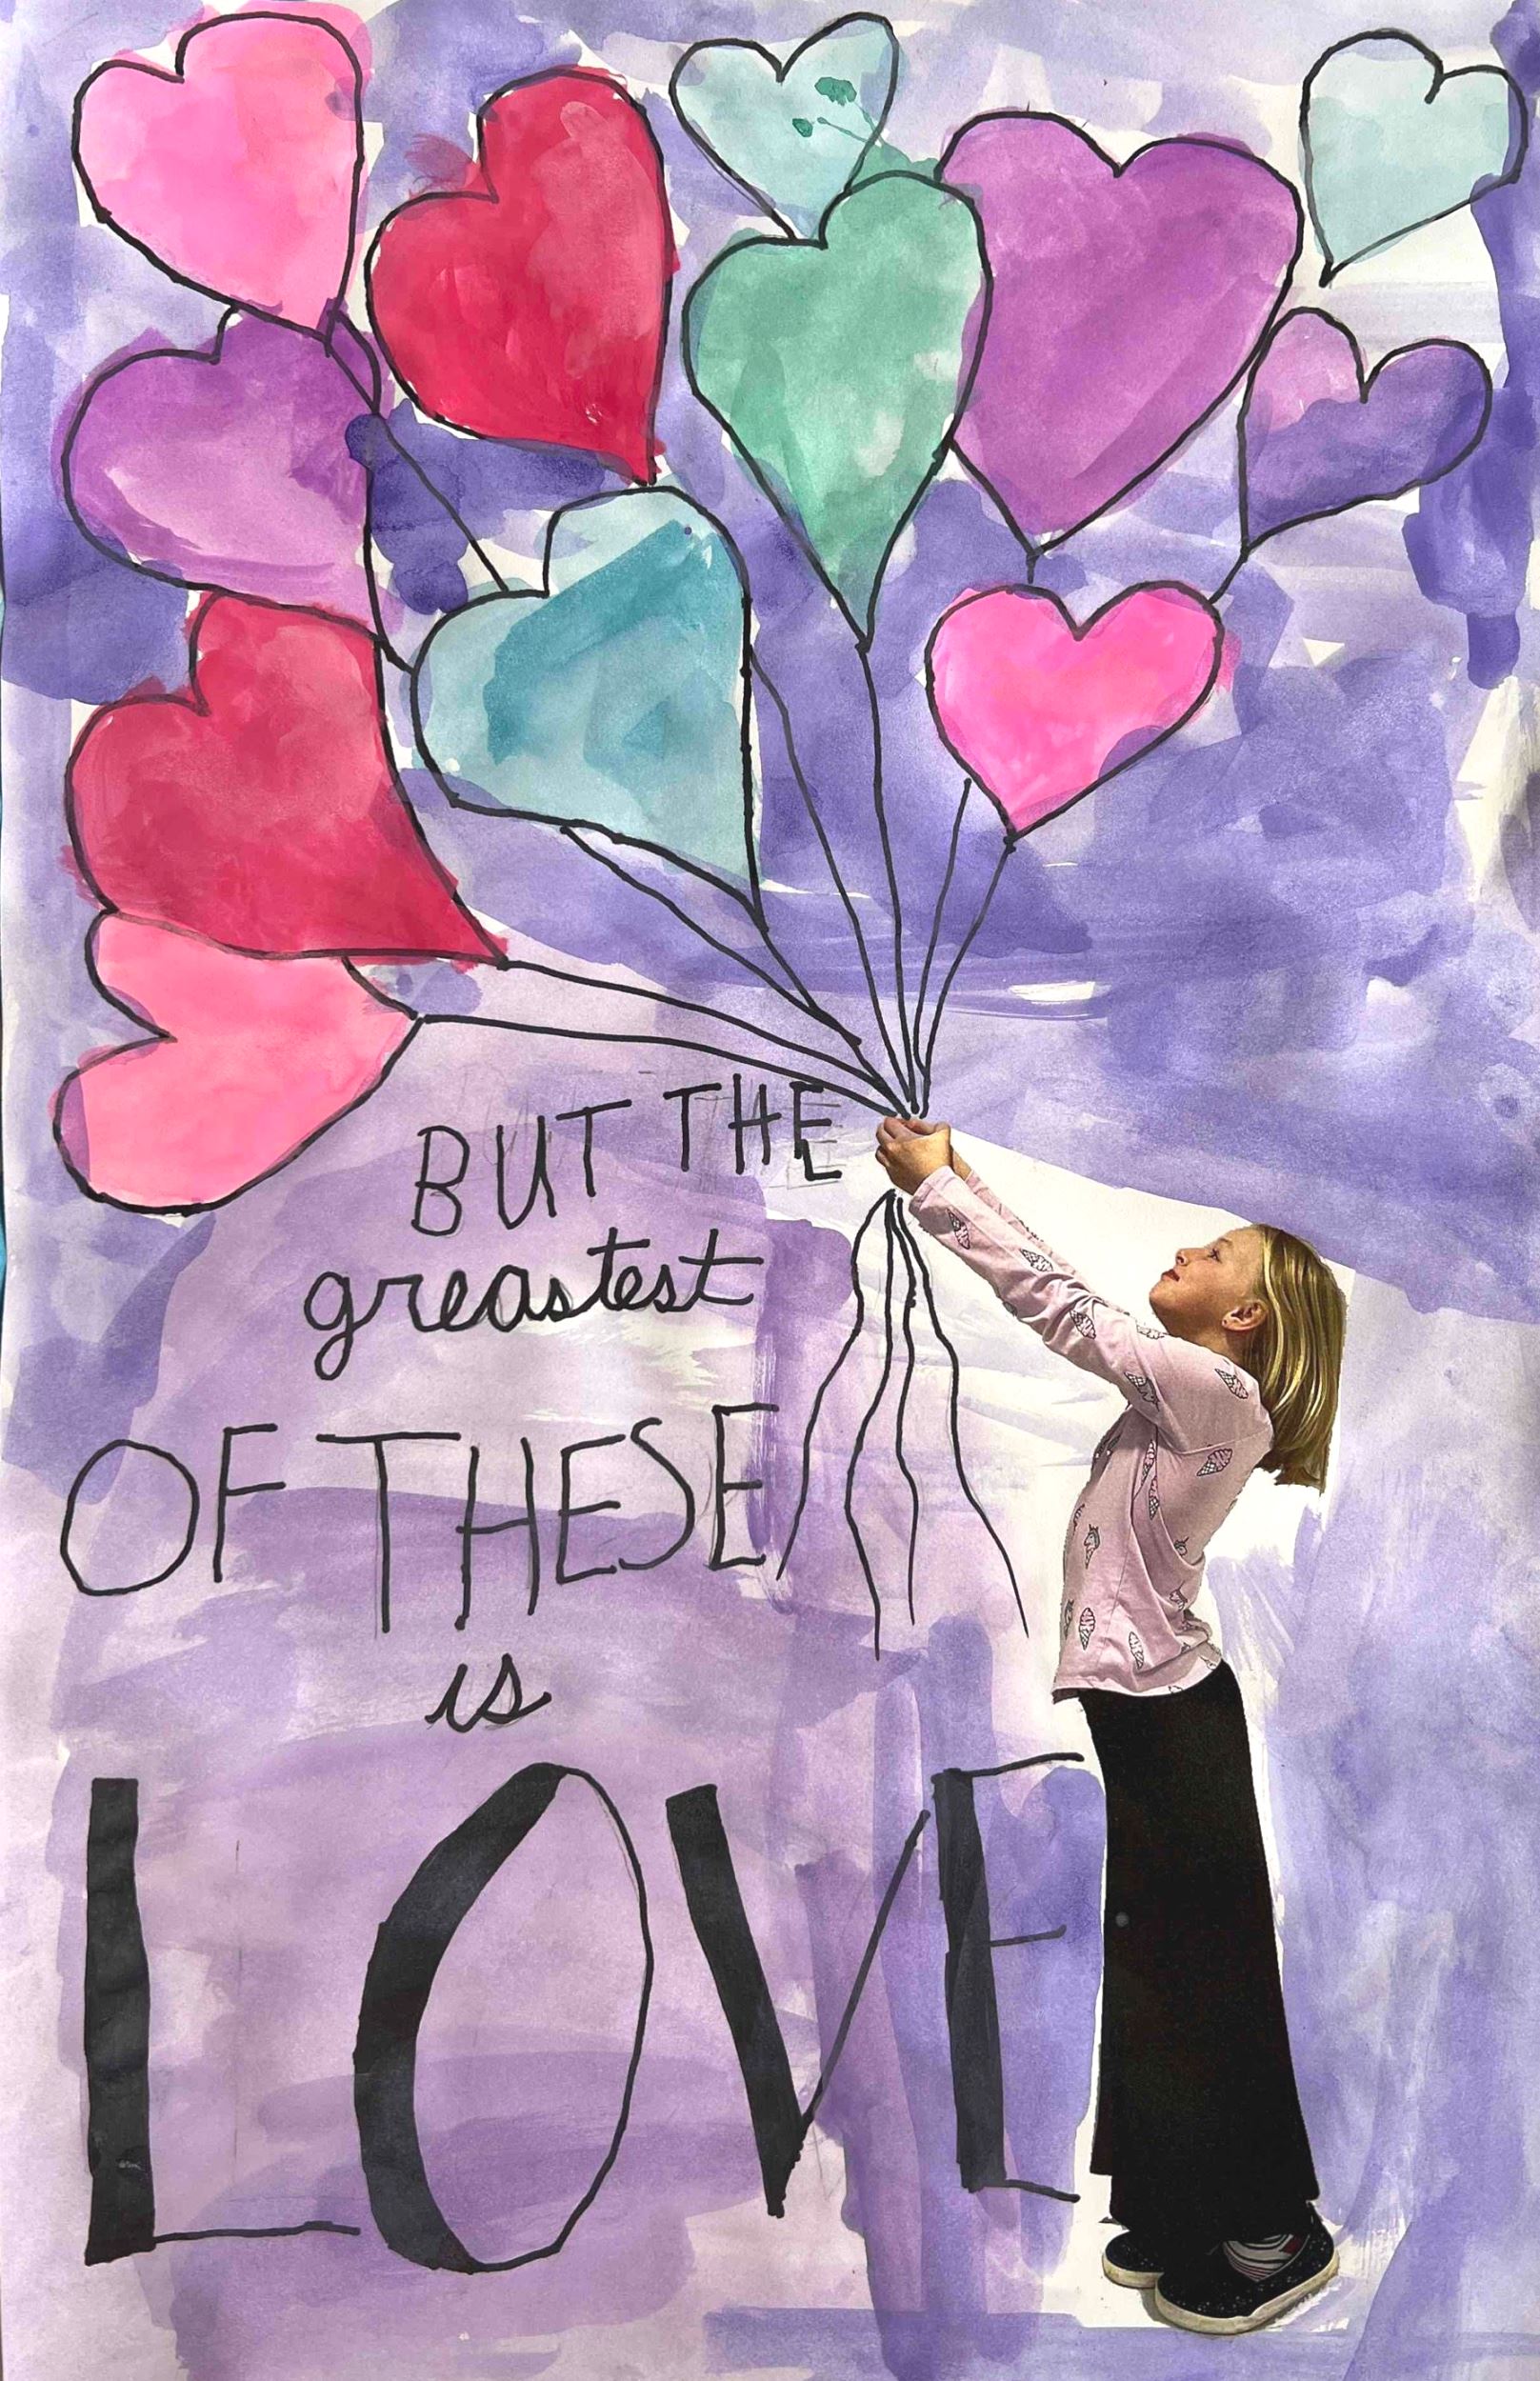 BUT THE
greastest
OF THESE
is
LOVE